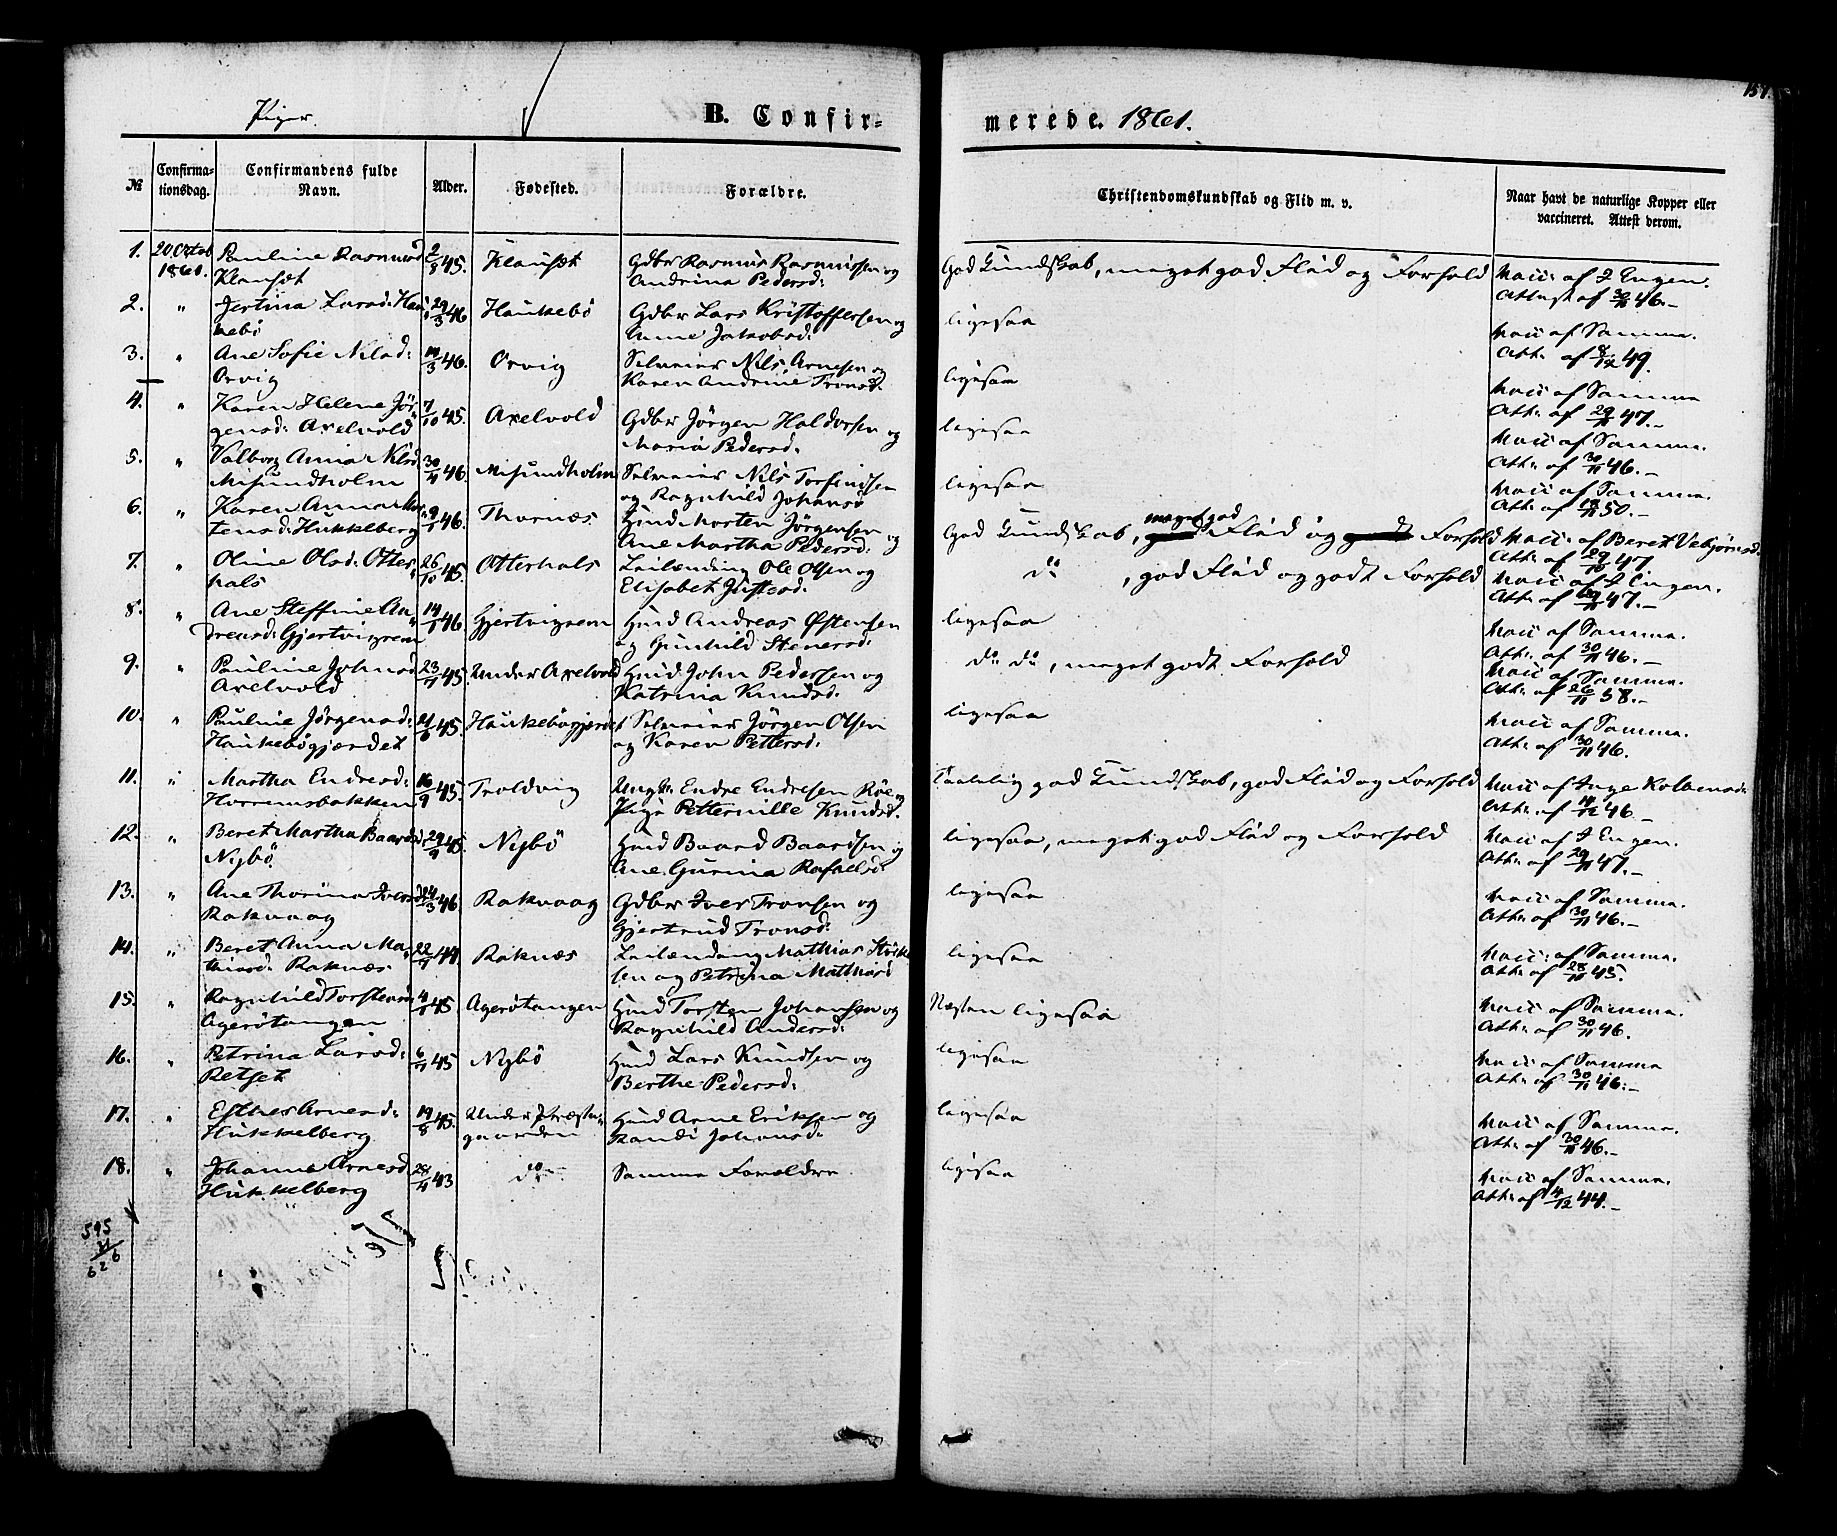 157.
Piger.
B. Confirmerede. 1861.
№ Confirmationsdag. Confirmandens fulde Navn. Alder. Fødested. Forældre. Christendomskundskab og Flid m. v. Naar havt de naturlige Kopper eller vaccineret. Attest derom.
1. 20 Octob 1861. Pauline Rasmusd Klausæt 2/8 45. Klausæt Gdbr Rasmus Rasmussen og Andrina Pedersd: God Kundskab, meget god Flid og Forhold Vacc: af J Engen. Attest af 30/11 46.-
2. " Jertina Larsd: Haukebö 29/3 46 Haukebö Gdbr Lars Kristoffersen og Anne Jakobsd: ligesaa Vacc af Samme. Att: af 8/12 49.
3. " Ane Sofie Nilsd: Orvig 3 46. Orvig Selveier Nils Arnesen og Karen Andrine Tronsd: ligesaa Vacc af Samme Att: af 29/11 47.-
4. " Karen Helene Jörgensd: Axelvold 7/10 45 Axelvold Gdbr Jörgen Haldorsen og Maria Pedersd: ligesaa Vacc af Samme. Att: af 30/11 46.-
5. " Valborg Anna Nilsd Misundholm 30/4 46. Misundholm Selveier Nils Torfindsen og Ragnhild Johansd ligesaa Vacc af Samme. Att: af 50.-
6. " Karen Anna Mortensd: Hukkelberg 9/1 46. Thornæs Huusd Morten Jörgensen og Ane Martha Pedersd: God Kundskab, meget god Flid og Forhold Vacc: af Beret Vebjørnsd: Att: af 29/10 47
7. " Oline Olsd: Otterhals 26/10 45. Otterhals Leilænding Ole Olsen og Elisabet Justesd: do , god Flid og godt Forhold Vacc af J Engen. Att: af 47.-
8. " Ane Steffine Andreasd: Gjertvigrem 14/1 46. Gjertvigrem Huusd Andreas Østensen og Gunhild Stenersd: ligesaa Vacc af Samme. Att: af 30/11 46.-
9. " Pauline Johnsd Axelvold 23/7 45. Under Axelvold Huusd John Pedersen og Katrina Knudsd: do do, meget godt Forhold Vacc af Samme. Att: af 26/11 58.-
10. " Pauline Jörgensd: Haukebögjerdet 45 Haukebögjerdet Selveier Jörgen Olsen og Karen Pettersd: ligesaa Vacc af Samme. Att: af 30/11 46.
11. " Martha Endresd: Horremsbakken 16/9 45. Troldvig Ungk: Endre Endresen og Pige Petternille Knudsd. Taalelig god Kundskab, god Flid og Forhold Vacc af Inge Kolbensd: Att: af 14/12 46.-
12. " Beret Martha Baardsd. Nybö 29/9 45. Nybö Huusd Baard Baardsen og Ane Gurina Rafaelsd: ligesaa, meget god Flid og Forhold Vacc af J Engen. Att: af 29/11 47.-
13. " Ane Thorina Iversd 24/3 46. Rakvaag Rakvaag Gdbr Iver Tronsen og Gjertrud Tronsd: ligesaa Vacc af Samme. Att: af 30/11 46.-
14. " Beret Anna Mathiasd: Raknæs 22/7 44 Raknæs Leilænding Mathias og Petrina Mathiasd ligesaa Vacc: af Samme. Att: af 28/11 45.
15. " Ragnhild Torstensd Agerötangen 4/1 45 Agerötangen Huusd Torsten Johansen og Ragnhild Andersd: Næsten ligesaa Vacc af Samme. Att: af 30/11 46.
16. " Petrina Larsd: Retset 6/7 45 Nybö Huusd Lars Knudsen og Berthe Pedersd: ligesaa Vacc af Samme Att: af 30/11 46.-
17. " Esther Arnesd: Hukkelberg 19/8 45. Under Præstegaarden Huusd Arne Eriksen og Randi Johansd: ligesaa Vacc af Samme. Att: af 30/11 46.-
18. " Johanne Arnesd Hukkelberg 28/4 43 do Samme Forældre ligesaa Vacc af Samme. Att: af 4/12 44.-
595
31
626